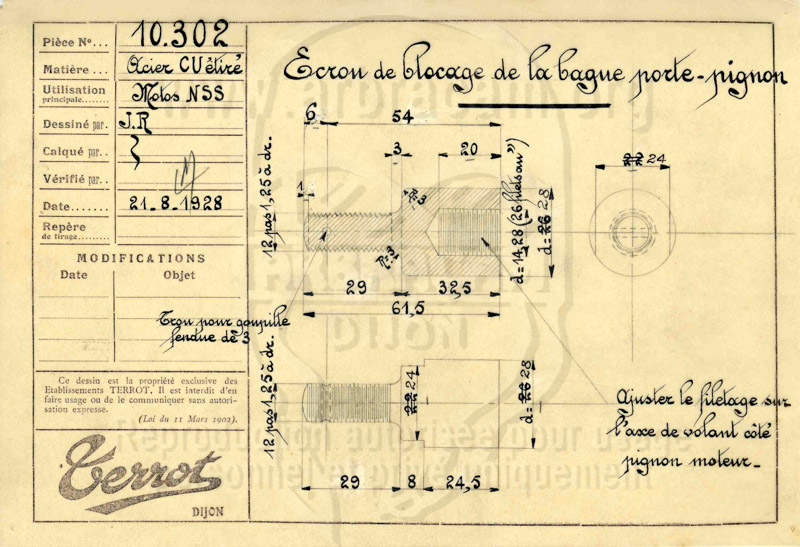 Pièce Nº... 10.302
Matière... Acier CU étiré
Utilisation
principale........ Motos NSS
Dessiné par. J.R
Calqué par..
Vérifié par...
Date........ 21-8-1928
Repère
de tirage......
MODIFICATIONS
Date Objet
Ce dessin est la propriété exclusive des
Etablissements TERROT. Il est interdit d'en
faire usage ou de le communiquer sans autori-
sation expresse.
(Loi du 11 Mars 1902).
Terrot
DIJON
Ecrou de blocage de la bague porte-pignon
6 54
3 20
1
12 pas 1,25 à dr.
R=3
R=3
d=14,28 (26 filets au")
d=26 28
22 24
29 32,5
61,5
Trou pour goupille
fendue de 3
12 pas 1,25 à dr.
22 24
d=26 28
29 8 24,5
Ajuster le filetage sur
l'axe de volant côté
pignon moteur-
DIJON
Reproduction autorisée pour usage
personnel et privé uniquement